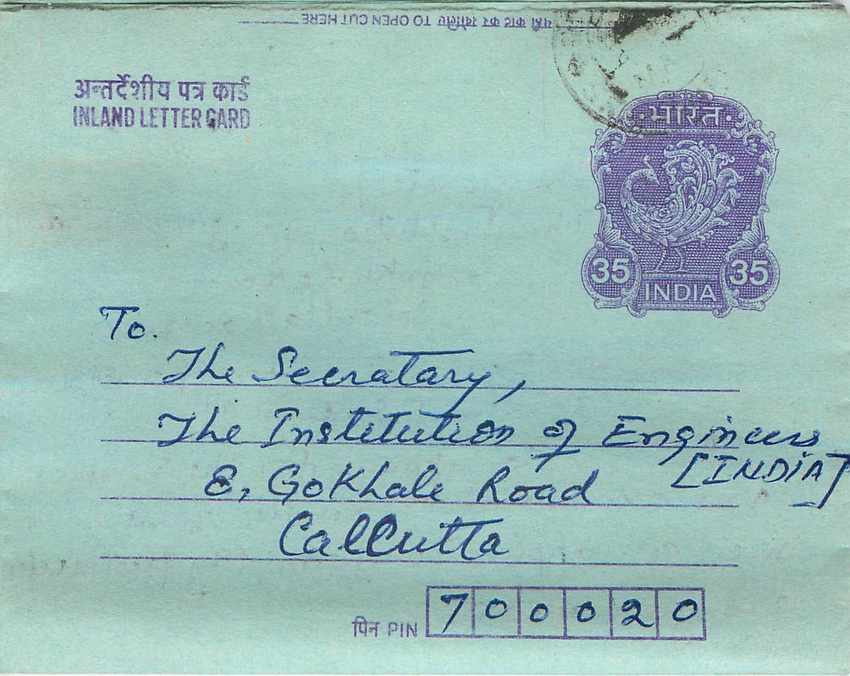 यहाँ काट कर खोलिए TO OPEN CUT HERE
अन्तर्देशीय पत्र कार्ड
INLAND LETTER CARD
भारत
35 35
INDIA
To.
The Secratary,
The Institution of Engineers
[INDIA]
8, Gokhale Road
Calcutta
पिन PIN 700020